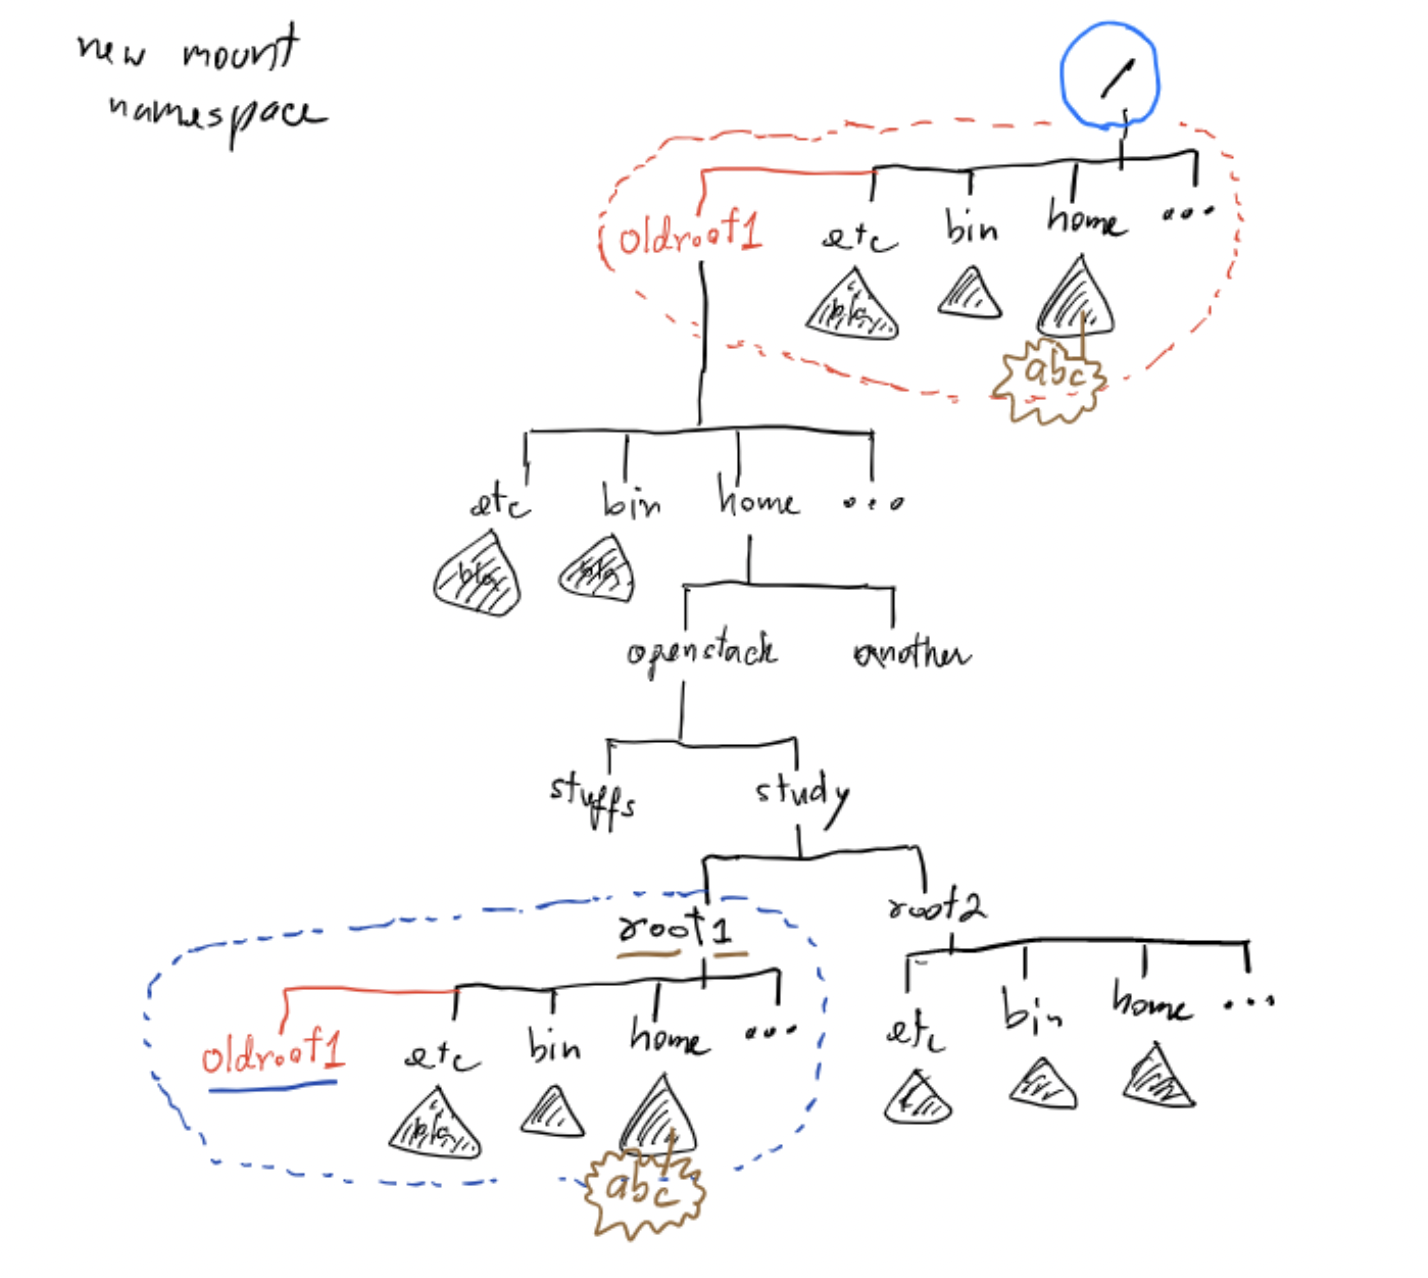 new mount
namespace
/
oldroot1 etc bin home ...
bla
abc
etc bin home ...
bla bla
openstack another
stuffs study
root1 root2
oldroot1 etc bin home ...
bla
abc
etc bin home ...